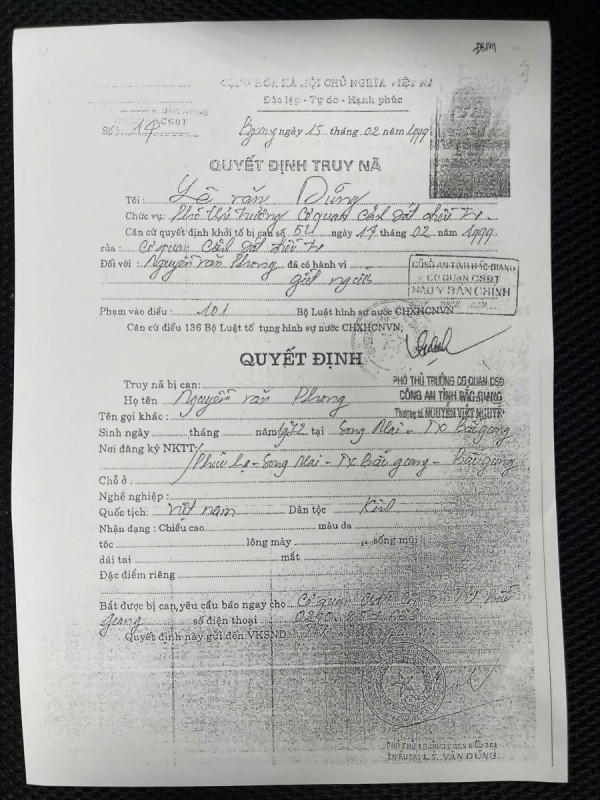 CỘNG HÒA XÃ HỘI CHỦ NGHĨA VIỆT NA
Độc lập - Tự do - Hạnh phúc
CSĐT
Số: 14
B.giang ngày 15 tháng 02 năm 1999
QUYẾT ĐỊNH TRUY NÃ
Tôi: Lê Văn Dũng
Chức vụ: Phó thủ trưởng Cơ quan Cảnh sát điều tr.
Căn cứ quyết định khởi tố bị can số 52 ngày 14 tháng 02 năm 1999
của: Cơ quan Cảnh sát điều tr
Đối với: Nguyễn Văn Phong đã có hành vi
giết người
CÔNG AN TỈNH BẮC GIANG
CƠ QUAN CSĐT
SAO Y BẢN CHÍNH
Phạm vào điều: 101 Bộ Luật hình sự nước CHXHCNVN
Căn cứ điều 136 Bộ Luật tố tụng hình sự nước CHXHCNVN;
QUYẾT ĐỊNH
PHÓ THỦ TRƯỞNG CƠ QUAN CSĐ
CÔNG AN TỈNH BẮC GIANG
Thượng tá NGUYỄN VIỆT
Truy nã bị can:
Họ tên Nguyễn Văn Phong
Tên gọi khác:
Sinh ngày tháng năm 1972 tại Song Mai - TX Bắc giang
Nơi đăng ký NKTT/
Song Mai - TX Bắc giang - Bắc giang
Chỗ ở:
Nghề nghiệp:
Quốc tịch: việt nam Dân tộc Kinh
Nhận dạng: Chiều cao màu da
tóc lông mày sống mũi
dái tai mắt
Đặc điểm riêng
Bắt được bị can, yêu cầu báo ngay cho Cơ quan
giang số điện thoại
Quyết định này gửi đến VKSND
VĂN DŨNG